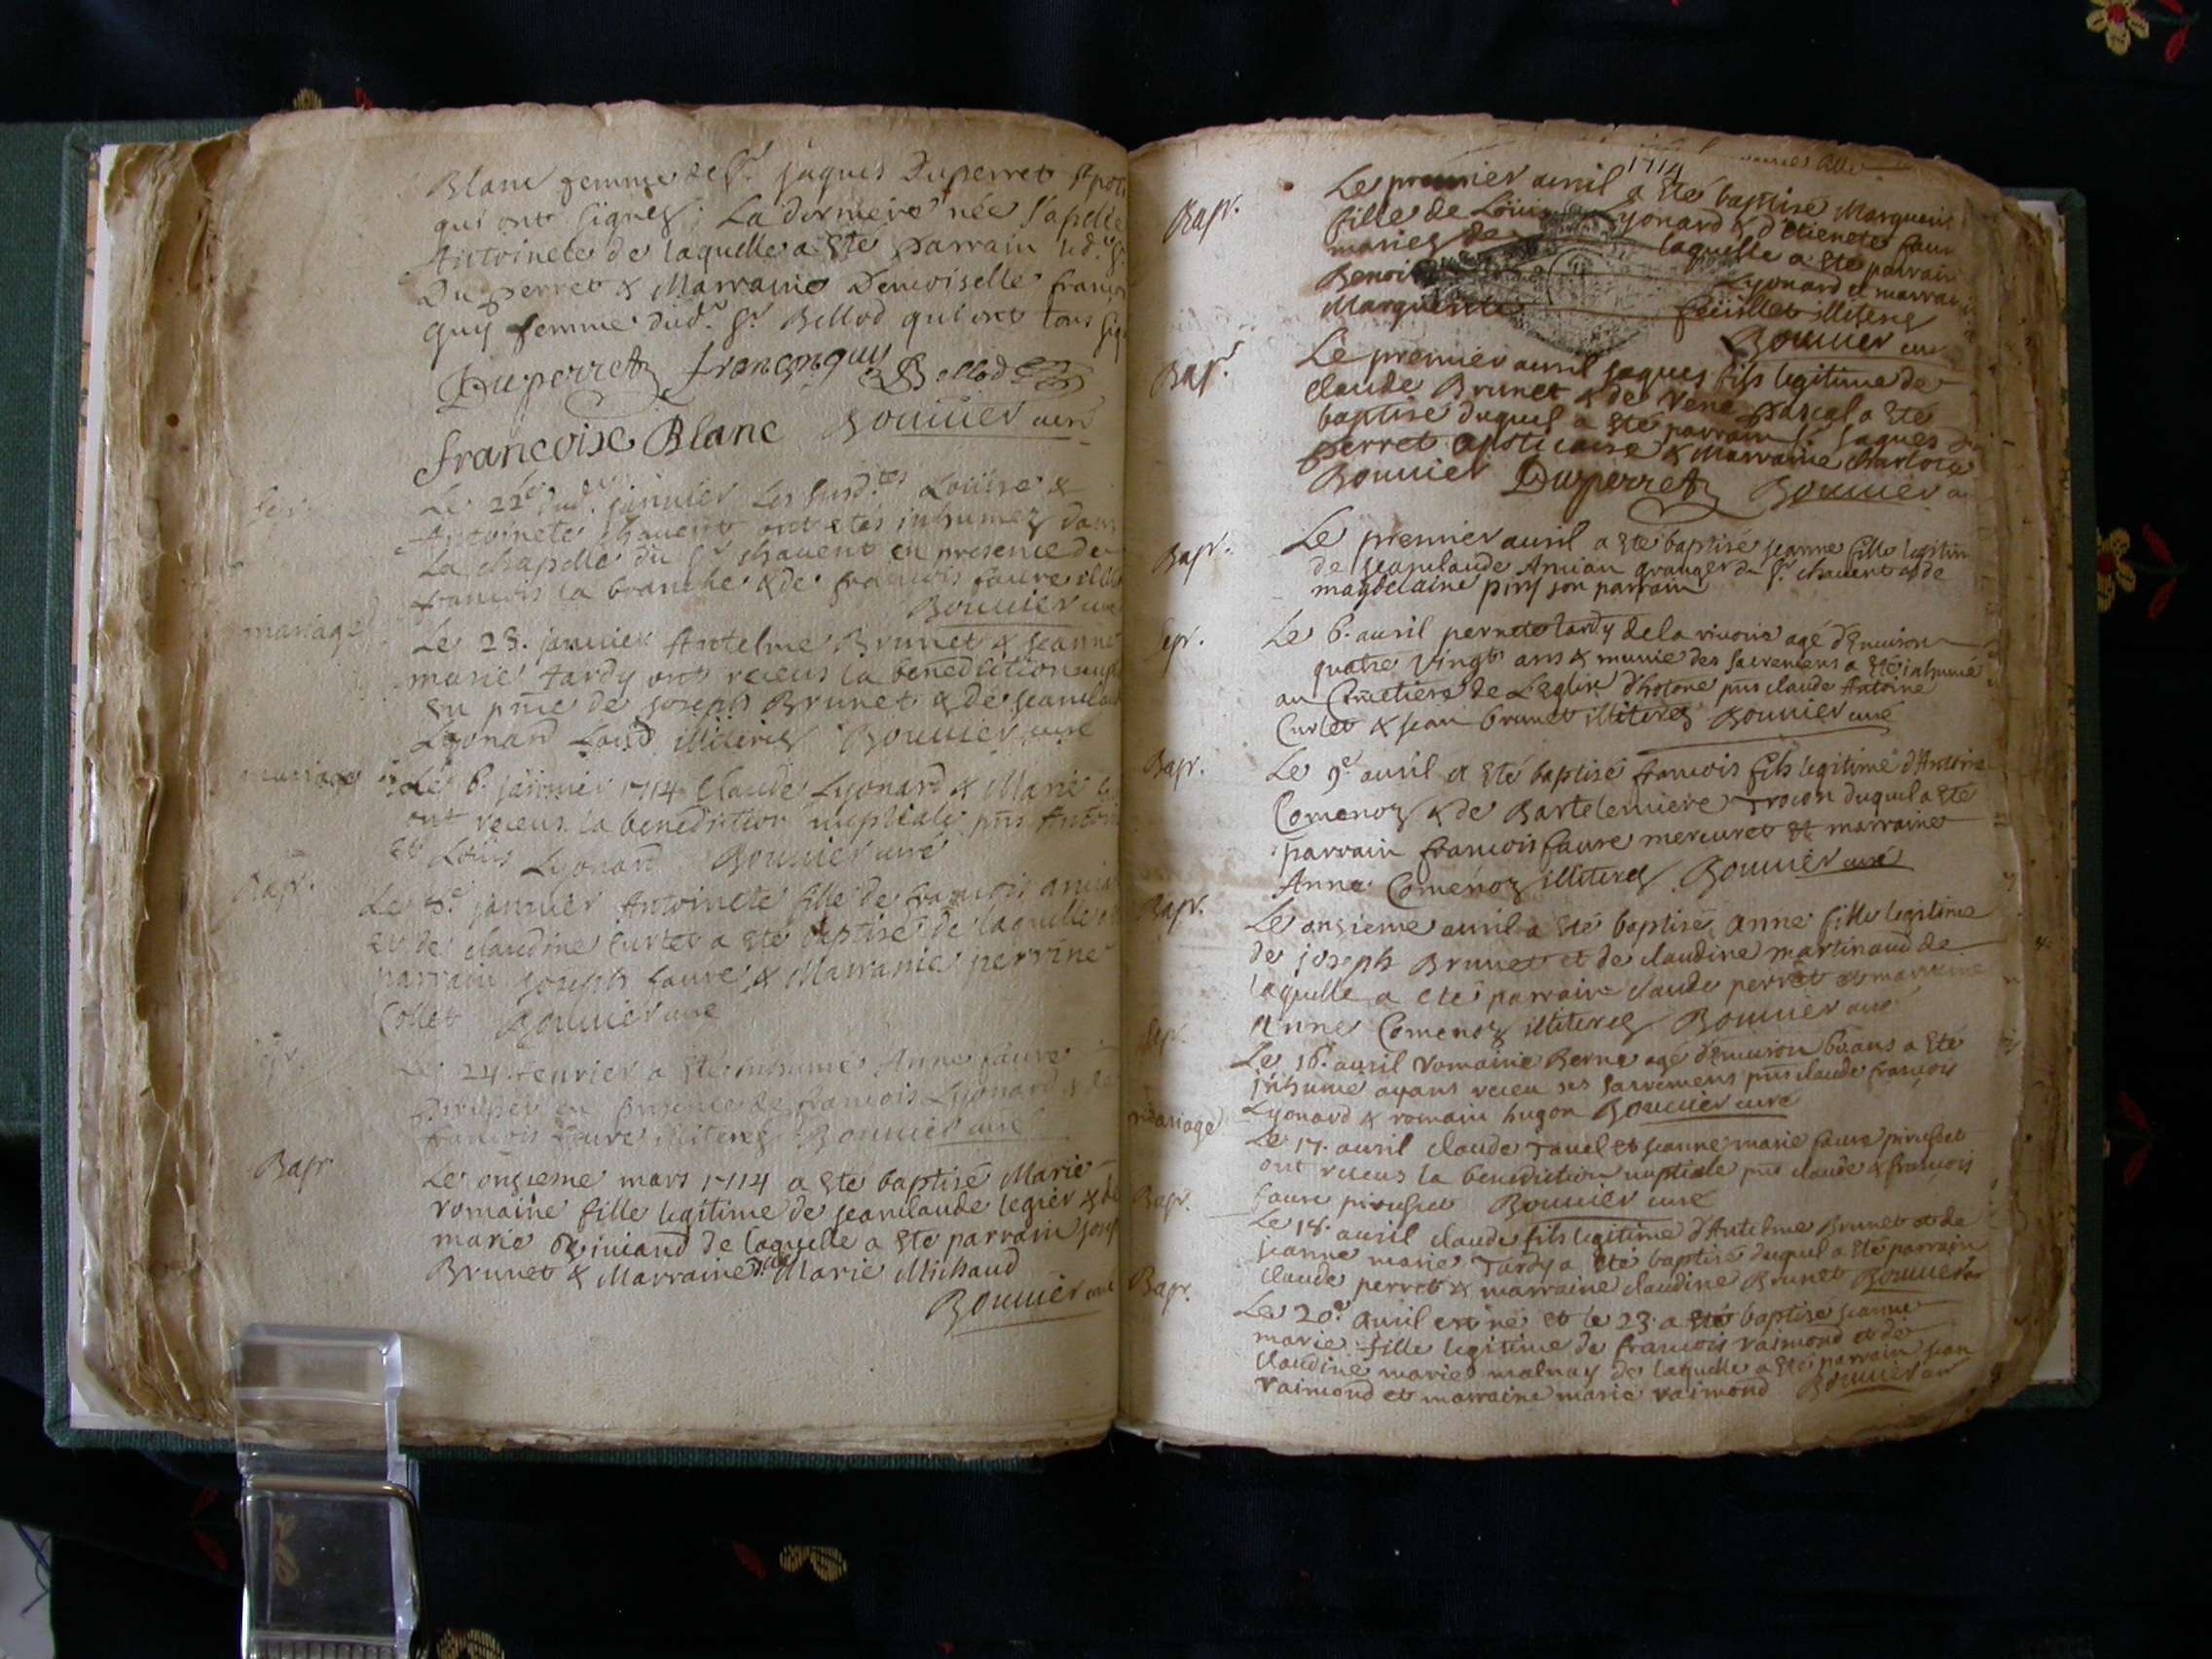 Blanc femme de Sr. jaques Duperret
qui ont signez; La derniere née s'apelle
Antoinete de laquelle a eté parrain led. Sr.
Du perret & Marraine Demoiselle françoi
Guy femme dud. Sr. Bellod qui ont tous sig
Duperret françoiguy Bellod
francoise Blanc Bouuier curé
Le 22e dud. januier les susd.tes Loüise &
Antoinete chauent ont etés inhumez dans
La chapelle du Sr chauent en presence de
francois la branche & de francois faure
Bouuier curé
mariage
Le 23. januier Antelme Brunet & jeanne
marie tardy ont receus la benediction nup
en pnce de joseph Brunet & de jeanclau
Lyonard illiterez Bouuier curé
mariage
Le 6. januier 1714 Claude Lyonard & Marie
ont receus la benediction nuptiale pns Antoi
et Loüis Lyonard Bouuier curé
Bapt.
Le 8e januier Antoinete fille de francois
et de claudine Curtet a eté baptisé de laquelle
parrain joseph faure & Marraine perrine
Collet Bouuier curé
24 feurier a eté inhumé Anne faure
en presence de francois Lyonard &
francois faure illiterez Bouuier curé
Bapt
Le onzieme mars 1714 a eté baptisé Marie
romaine fille legitime de jeanclaude legier & de
marie de laquelle a eté parrain jose
Brunet & Marraine Marie Michaud
Bouuier curé
1714
Bapt.
Le premier auril a eté baptisé Marguerit
fille de Loüis Lyonard & d'Etienete faur
mariez de laquelle a eté parrain
Benoi Lyonard et marrai
Marguerite feüillet illiterez
Bouuier cur
Bapt
Le premier auril jaques fils legitime de
claude Brunet & de rene pascal a eté
baptisé duquel a eté parrain Sr. jaques du
perret apoticaire & marraine charlote
Bouuier Duperret Bouuier c
Bapt.
Le premier auril a eté baptisé jeanne fille legitim
de jeanclaude Amian granger du Sr. chauent & de
magdelaine son parrain
Sepr.
Le 6. auril pernete tardy de la riuoire agé d'Enuiron
quatre Vingt ans & munie des sacremens a eté inhumé
au Cimetiere de L'Eglise d'hotone pns claude Antoine
Curtet & jean brunet illiterez Bouuier curé
Bapt.
Le 9e auril a eté baptisé francois fils legitime d'Antoine
Comenoz & de Bartelemiere Trocon duquel a eté
parrain francois faure mercuret et marraine
Anne Comenoz illiterez Bouuier curé
Bapt.
Le onzieme auril a eté baptisé anne fille legitime
de joseph Brunet et de claudine martinand de
laquelle a eté parrain claude perret et marraine
Anne Comenoz illiterez Bouuier curé
Sepr.
Le 16. auril romaine Berne agé d'Enuiron 60 ans a eté
inhumé ayant receu ses sacremens pns claude francois
Lyonard & romain hugon Bouuier curé
mariage
Le 17. auril claude Tauel et jeanne marie faure
ont receus la benediction nuptiale pns claude & francois
faure Bouuier curé
Bapt.
Le 18. auril claude fils legitime d'Antelme Brunet et de
jeanne marie Tardy a eté baptisé duquel a eté parrain
claude perret & marraine claudine Brunet Bouuier cur
Bapt.
Le 20e. auril est né et le 23. a eté baptisé jeanne
marie fille legitime de francois raimond et de
claudine marie malnay de laquelle a eté parrain jean
raimond et marraine marie raimond Bouuier cur